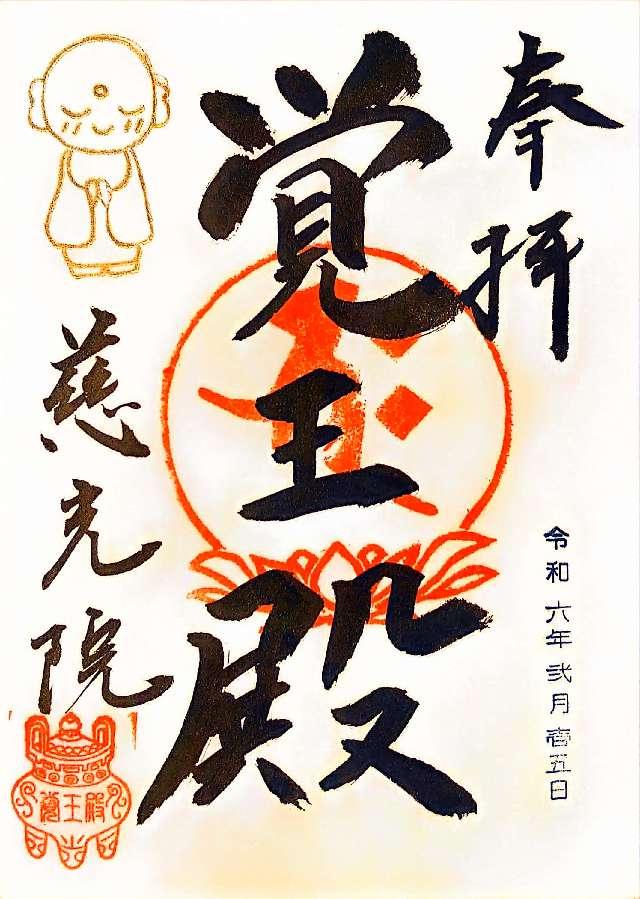 奉拝
覚王殿
令和六年弐月壱五日
慈光院
覚王殿